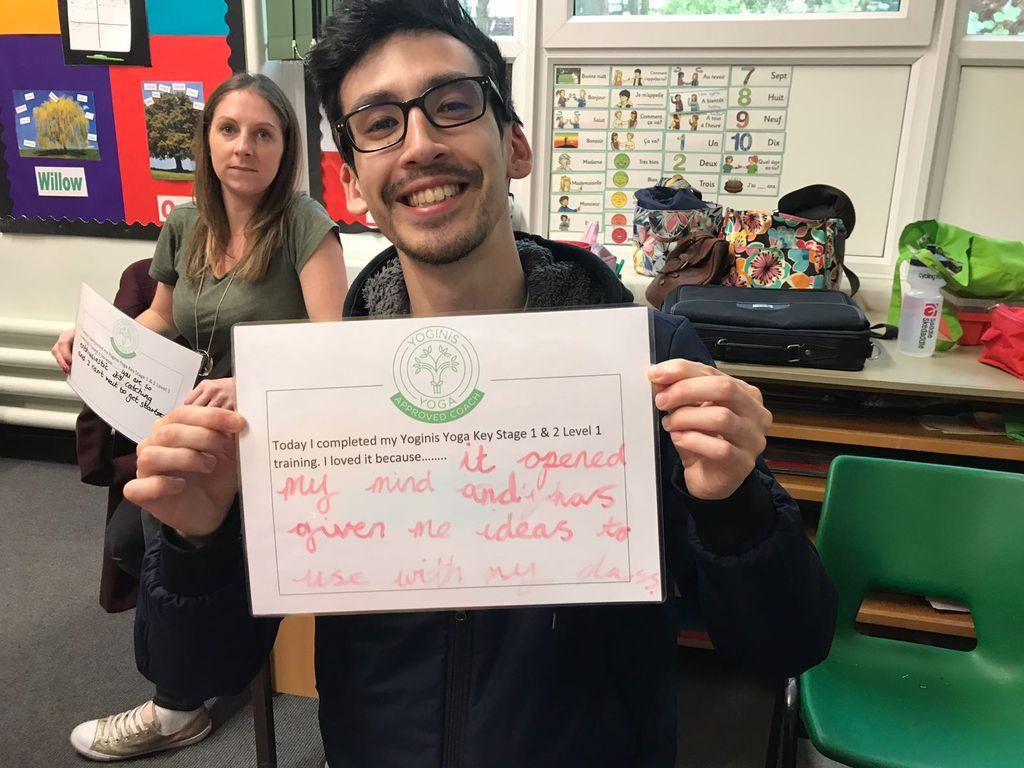 YOGINIS
YOGA
APPROVED COACH
Today I completed my Yoginis Yoga Key Stage 1 & 2 Level 1
training. I loved it because........ it opened
my mind and it has
given me ideas to
use with my class
you are so
enthusiastic it's catching
and I can't wait to get started
Willow
Bonne nuit
Comment t'appelles-tu?
Au revoir
7
Sept
Bonjour
Je m'appelle
A bientôt
8
Huit
Salut
Comment ça va?
A tout à l'heure
9
Neuf
Bonsoir
Ça va?
1
Un
10
Dix
Madame
Très bien
2
Deux
Quel âge as-tu?
Mademoiselle
Bien
3
Trois
J'ai
cycling